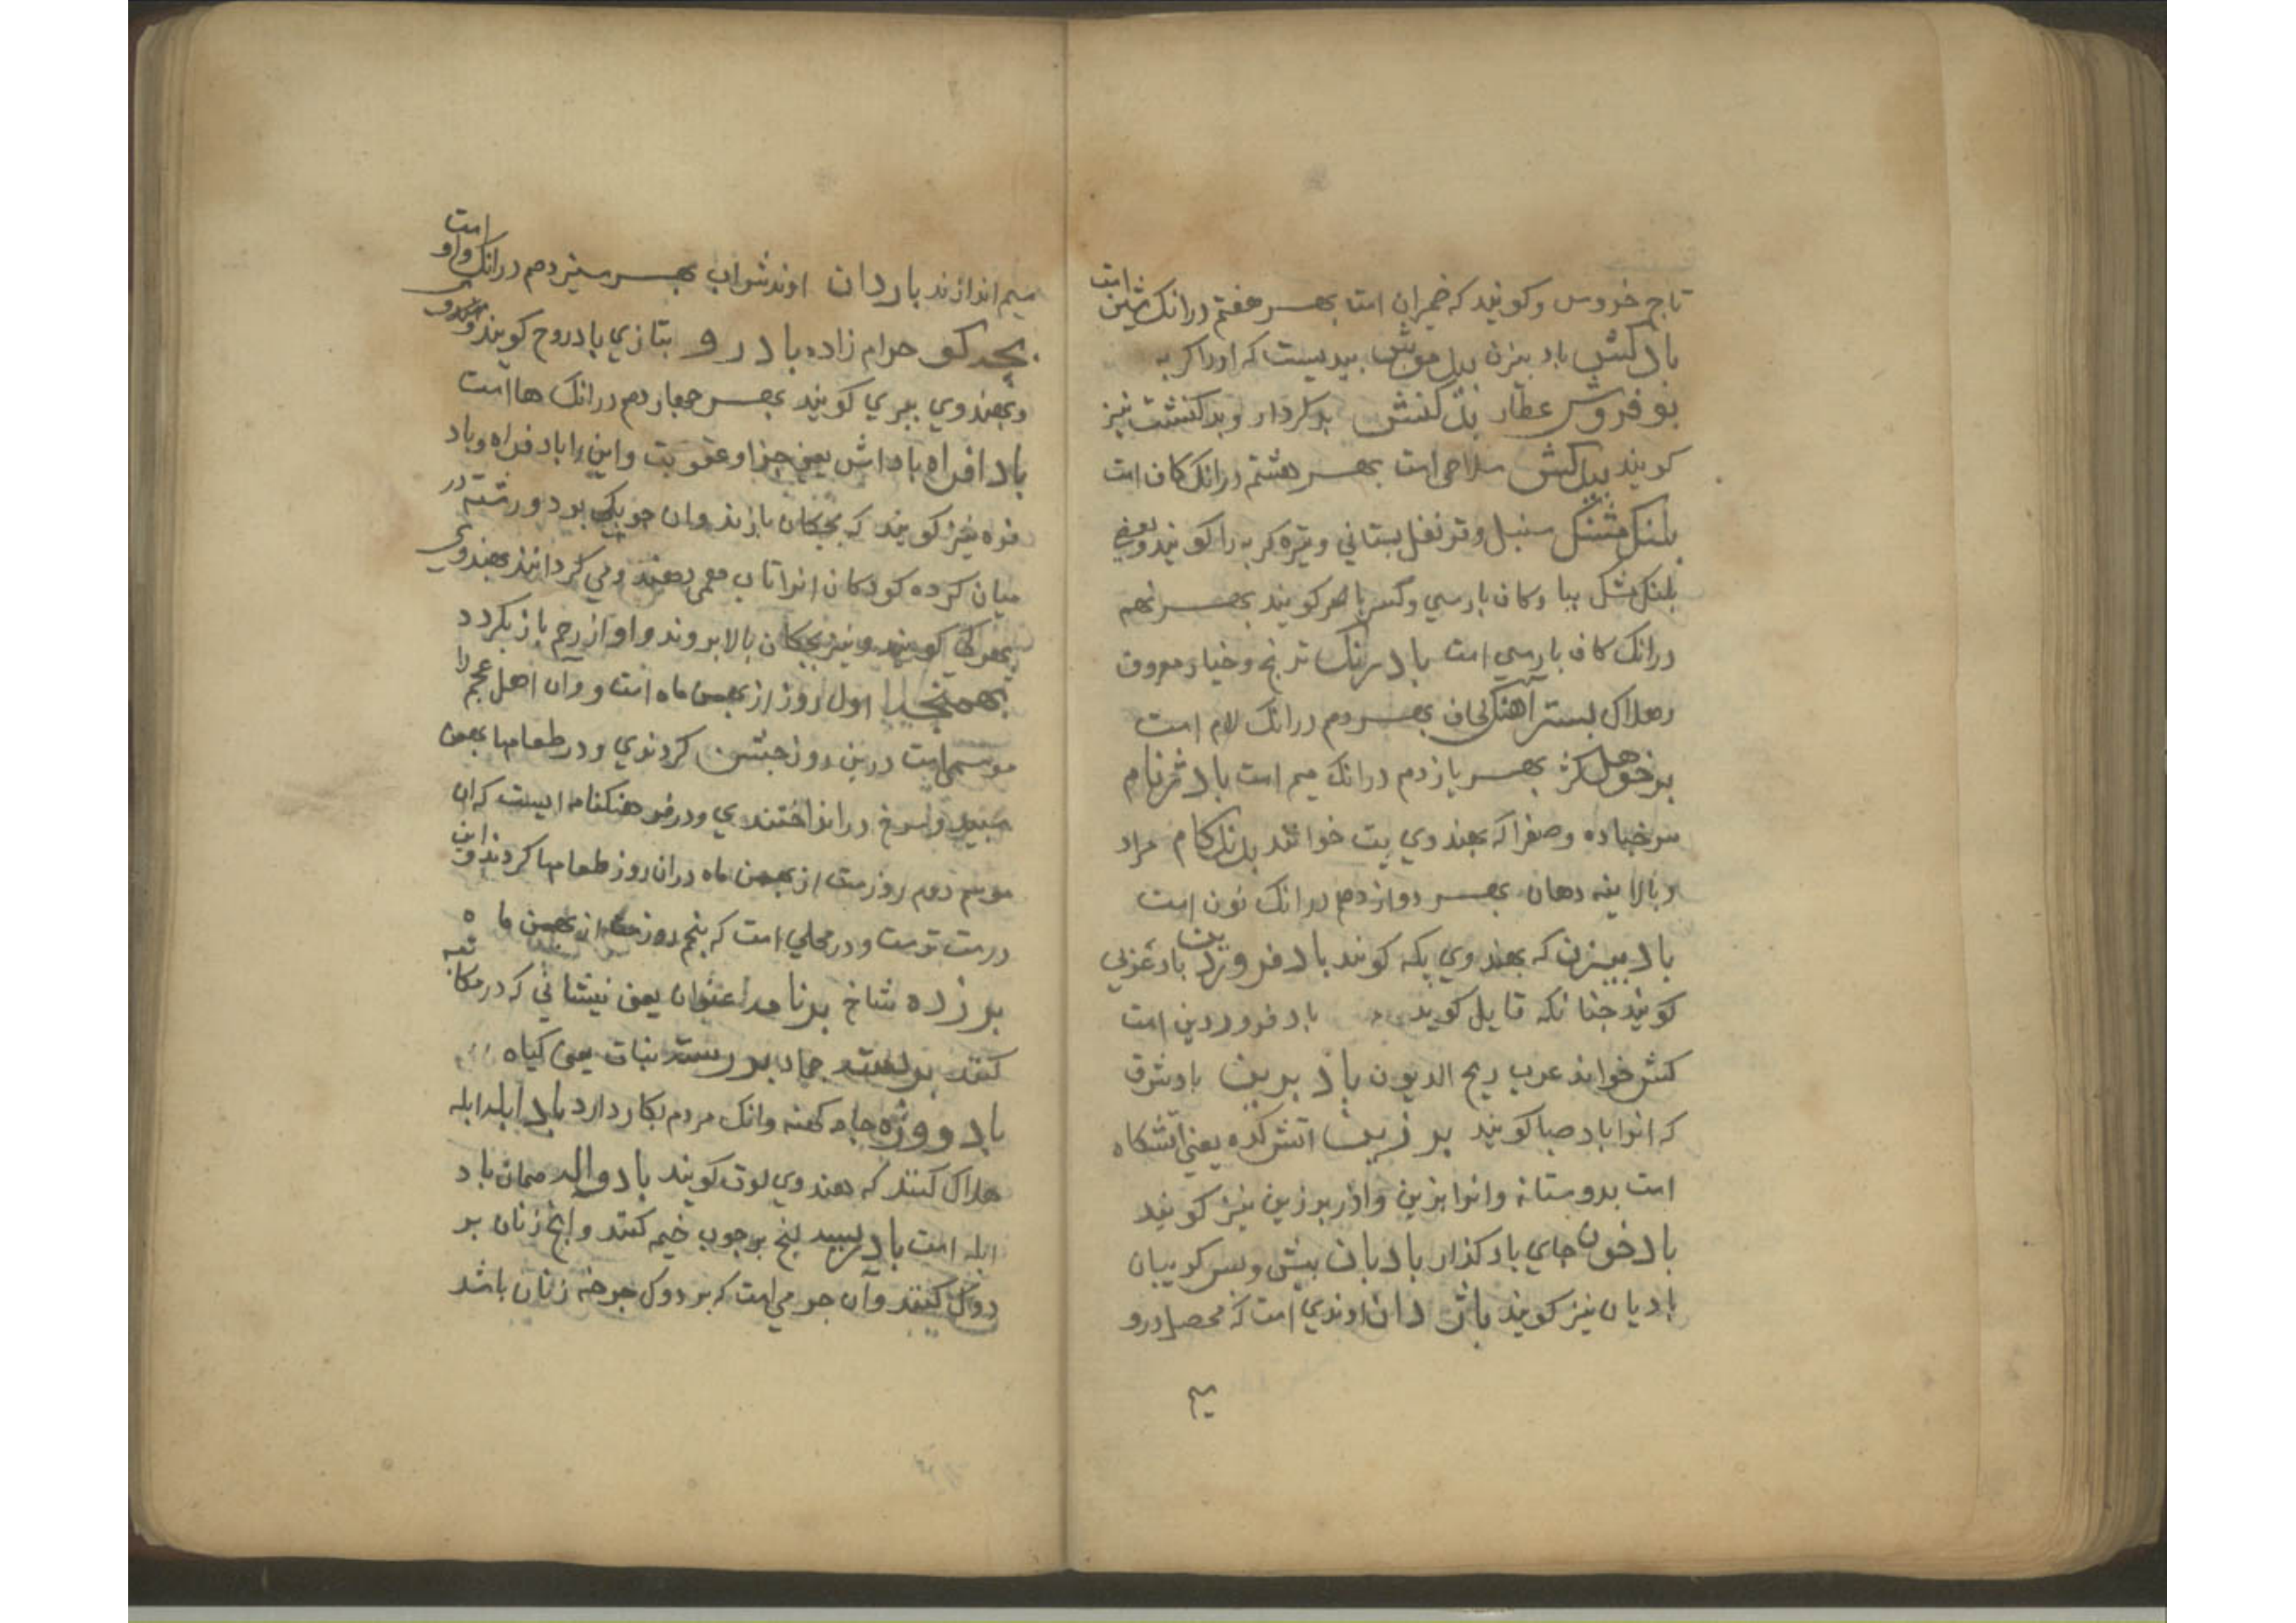 تاج خروس و کویند که ضمیران است بهر هفتم درانک شین است
باد کش باد بیزن بیل موش بیدیست که اورا کربه
بو فروش عطار بد کنش بد کردار و بد کنشت نیز
کویند بیل کش سلاحی است بهر هشتم درانک کاف است
بلنک مشک سنبل و قرنفل بستانی و تیزه کربه را کویند و بعضی
بلنک مشک ببا و کاف پارسی و کسر با هم کویند بهر نهم
درانک کاف پارسی است بادرنک ترنج و خیار معروف
و هلاک بستر آهنک لحاف بهر دهم درانک لام است
برخوهل کژ بهر یازدهم درانک میم است باد ژنام
سرخباده و صفرا که بهندوی پت خوانند بدنک کام مراد
و بالاینه دهان بهر دوازدهم درانک نون است
باد بیزن که بهندوی پکه کویند باد فروردین باد غربی
کویند چنانکه قایل کوید باد فروردین است
کش خواند عرب ریح الدبون باد برین باد شرق
که انرا باد صبا کویند برزین اتش کده یعنی اتشکاه
است بدوستانه و انرا بزین و اذر برزین نیز کویند
بادخون جای باد کذار بادبان پیش و پس کریبان
بادیان نیز کویند باژ دان اوندی است که محصل درو
سیم
سیم اندازند باردان اوند شراب بهر سیزدهم درانک واو است
بچه کو حرام زاده بادرو بتازی بادروج کویند
و بهندوی ببری کویند بهر چهاردهم درانک ها است
باد افراه باداش یعنی جزا و عقوبت و این را بادفراه و باد
فره نیز کویند که بچکان بازند و ان چوبکی بود و رشته در
میان کرده کودکان انرا تاب همی دهند و می کردانند بهندوی
بهرکی کویند و نیز بچکان بالا بروند و اواز رحم باز بکردد
بهمنجه اول روز از بهمن ماه است و وان اهل عجم را
موسمی است درین روز جشن کردندی و در طعامها بهمن
سپید و سرخ در انداختندی و در فرهنکنامه ایست که ان
موسم دوم روزست از بهمن ماه دران روز طعامها کردند و این
درست ترست و در محلی است که پنجم روزست از بهمن ماه
برزده شاخ برنامه عنوان یعنی نیشانی که در مکاتبه
کنند بر بست جماد بر رست نبات یعنی کیاه
بادووژه جامه کهنه وانک مردم بکار دارد باد ابله ابله
هلاک کنند که هندوی لوت کویند بادواله همان باد
ابله است بادریسه لنج بر چوب خیمه کنند و انچ زنان بر
دوک کنند و آن چرمی است که بر دوک چرخه زنان باشد